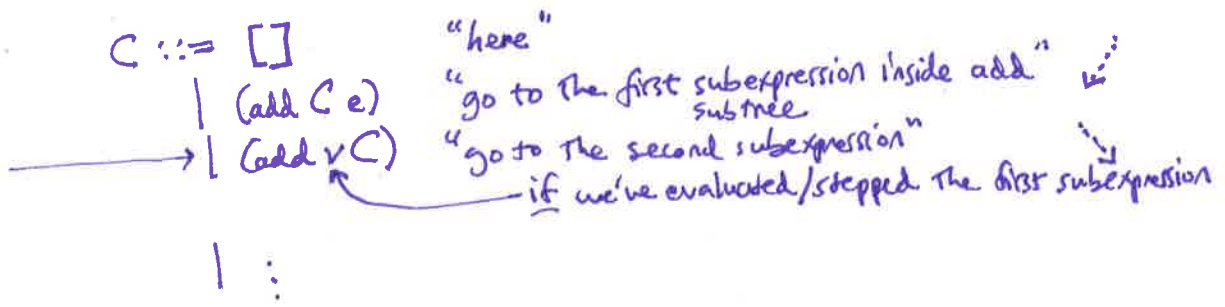 C ::= [] "here"
| (add C e) "go to the first subexpression inside add"
subtree
| (add v C) "go to the second subexpression"
if we've evaluated/stepped the first subexpression
| ⋮